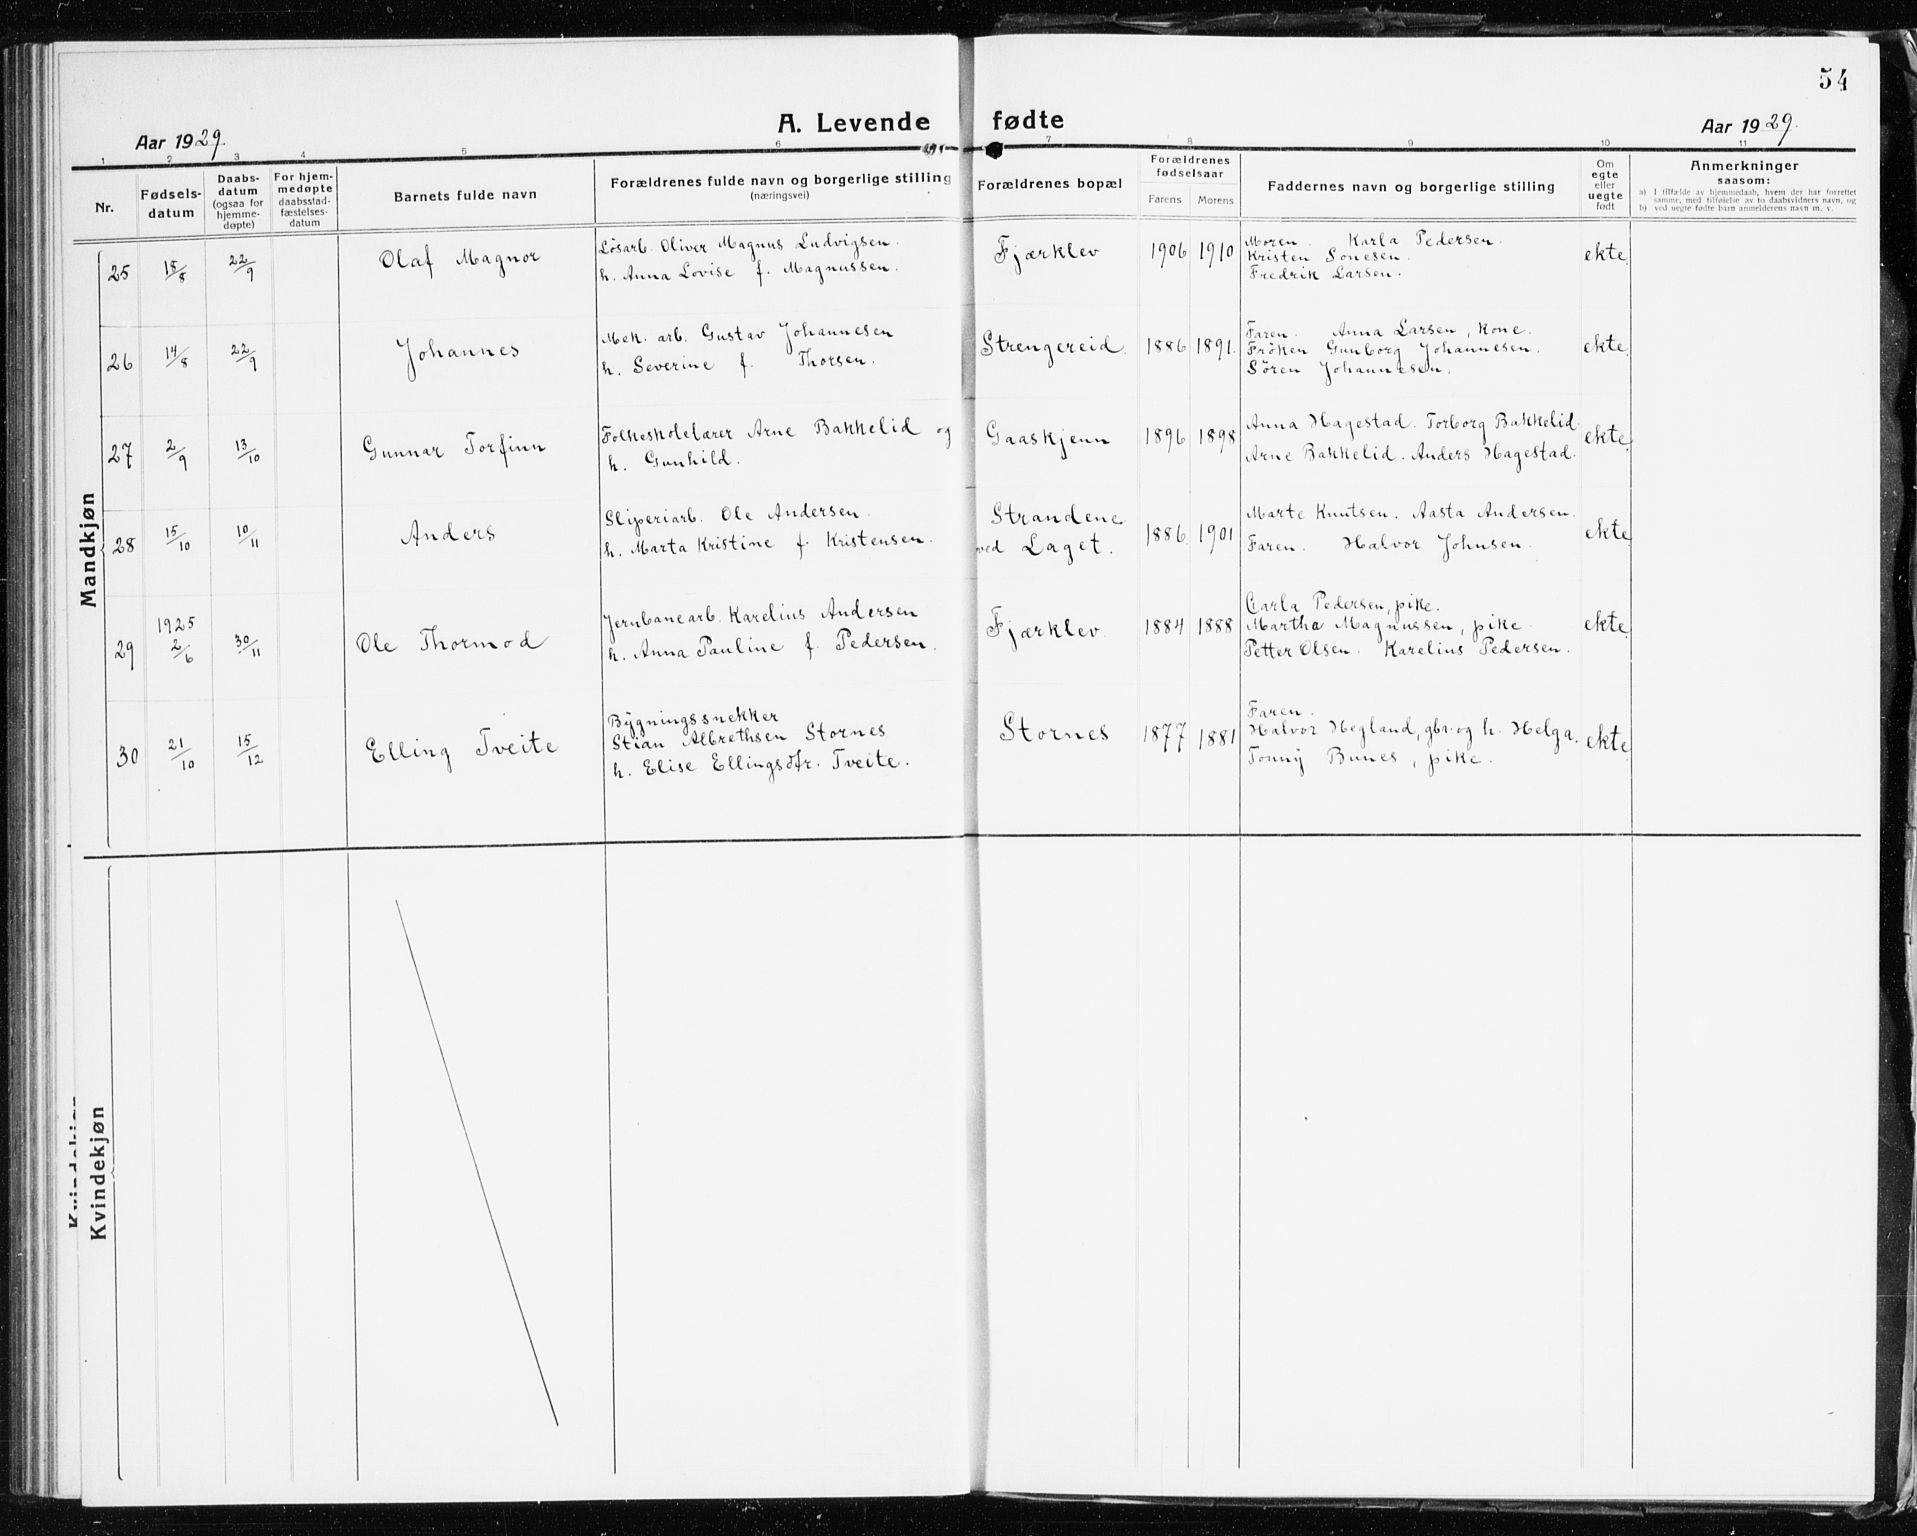 54
A. Levende fødte
Aar 1929.
Aar 1929.
1 2 3 4 5 6 7 8 9 10 11
Nr.
Fødsels-
datum
Daabs-
datum
(ogsaa for
hjemme-
døpte)
For hjem-
medøpte
daabsstad-
fæstelses-
datum
Barnets fulde navn
Forældrenes fulde navn og borgerlige stilling
(næringsvei)
Forældrenes bopæl
Forældrenes
fødselsaar
Farens Morens
Faddernes navn og borgerlige stilling
Om
egte
eller
uegte
født
Anmerkninger
saasom:
a) I tilfælde av hjemmedaab, hvem der har forrettet
samme, med tilføielse av to daabsvidners navn, og
b) ved uegte fødte barn anmelderens navn m. v.
Mandkjøn
25 15/8 22/9 Olaf Magnor
Løsarb. Oliver Magnus Ludvigsen.
h. Anna Lovise f. Magnussen.
Fjærklev 1906 1910
Moren. Karla Pedersen.
Kristen Sønesen.
Fredrik Larsen.
ekte.
26 14/8 22/9 Johannes
Mek. arb. Gustav Johannesen
h. Severine f. Thorsen.
Strengereid. 1886 1891.
Faren. Anna Larsen, kone.
Frøken Gunborg Johannesen.
Søren Johannesen.
ekte.
27 2/9 13/10 Gunnar Torfinn
Folkeskolelærer Arne Bakkelid og
h. Gunhild.
Gaaskjenn 1896 1898
Anna Hagestad. Torborg Bakkelid.
Arne Bakkelid. Anders Hagestad.
ekte.
28 15/10 10/11 Anders
Sliperiarb. Ole Andersen.
h. Marta Kristine f. Kristensen.
Strandene
ved Laget. 1886. 1901
Marte Knutsen. Aasta Andersen.
Faren. Halvor Johnsen.
ekte.
29 1925 2/6 30/11 Ole Thormod
Jernbanearb. Karelius Andersen
h. Anna Pauline f. Pedersen.
Fjærklev. 1884 1888
Carla Pedersen, pike.
Martha Magnussen, pike.
Petter Olsen. Karelius Pedersen.
ekte.
30 21/10 15/12 Elling Tveite
Bygningssnekker
Stian Albrethsen Stornes
h. Elise Ellingsdtr. Tveite.
Stornes 1877 1881
Faren.
Halvor Hegland, gbr. og h. Helga.
Tonny Bunes, pike.
ekte.
Kvindekjøn